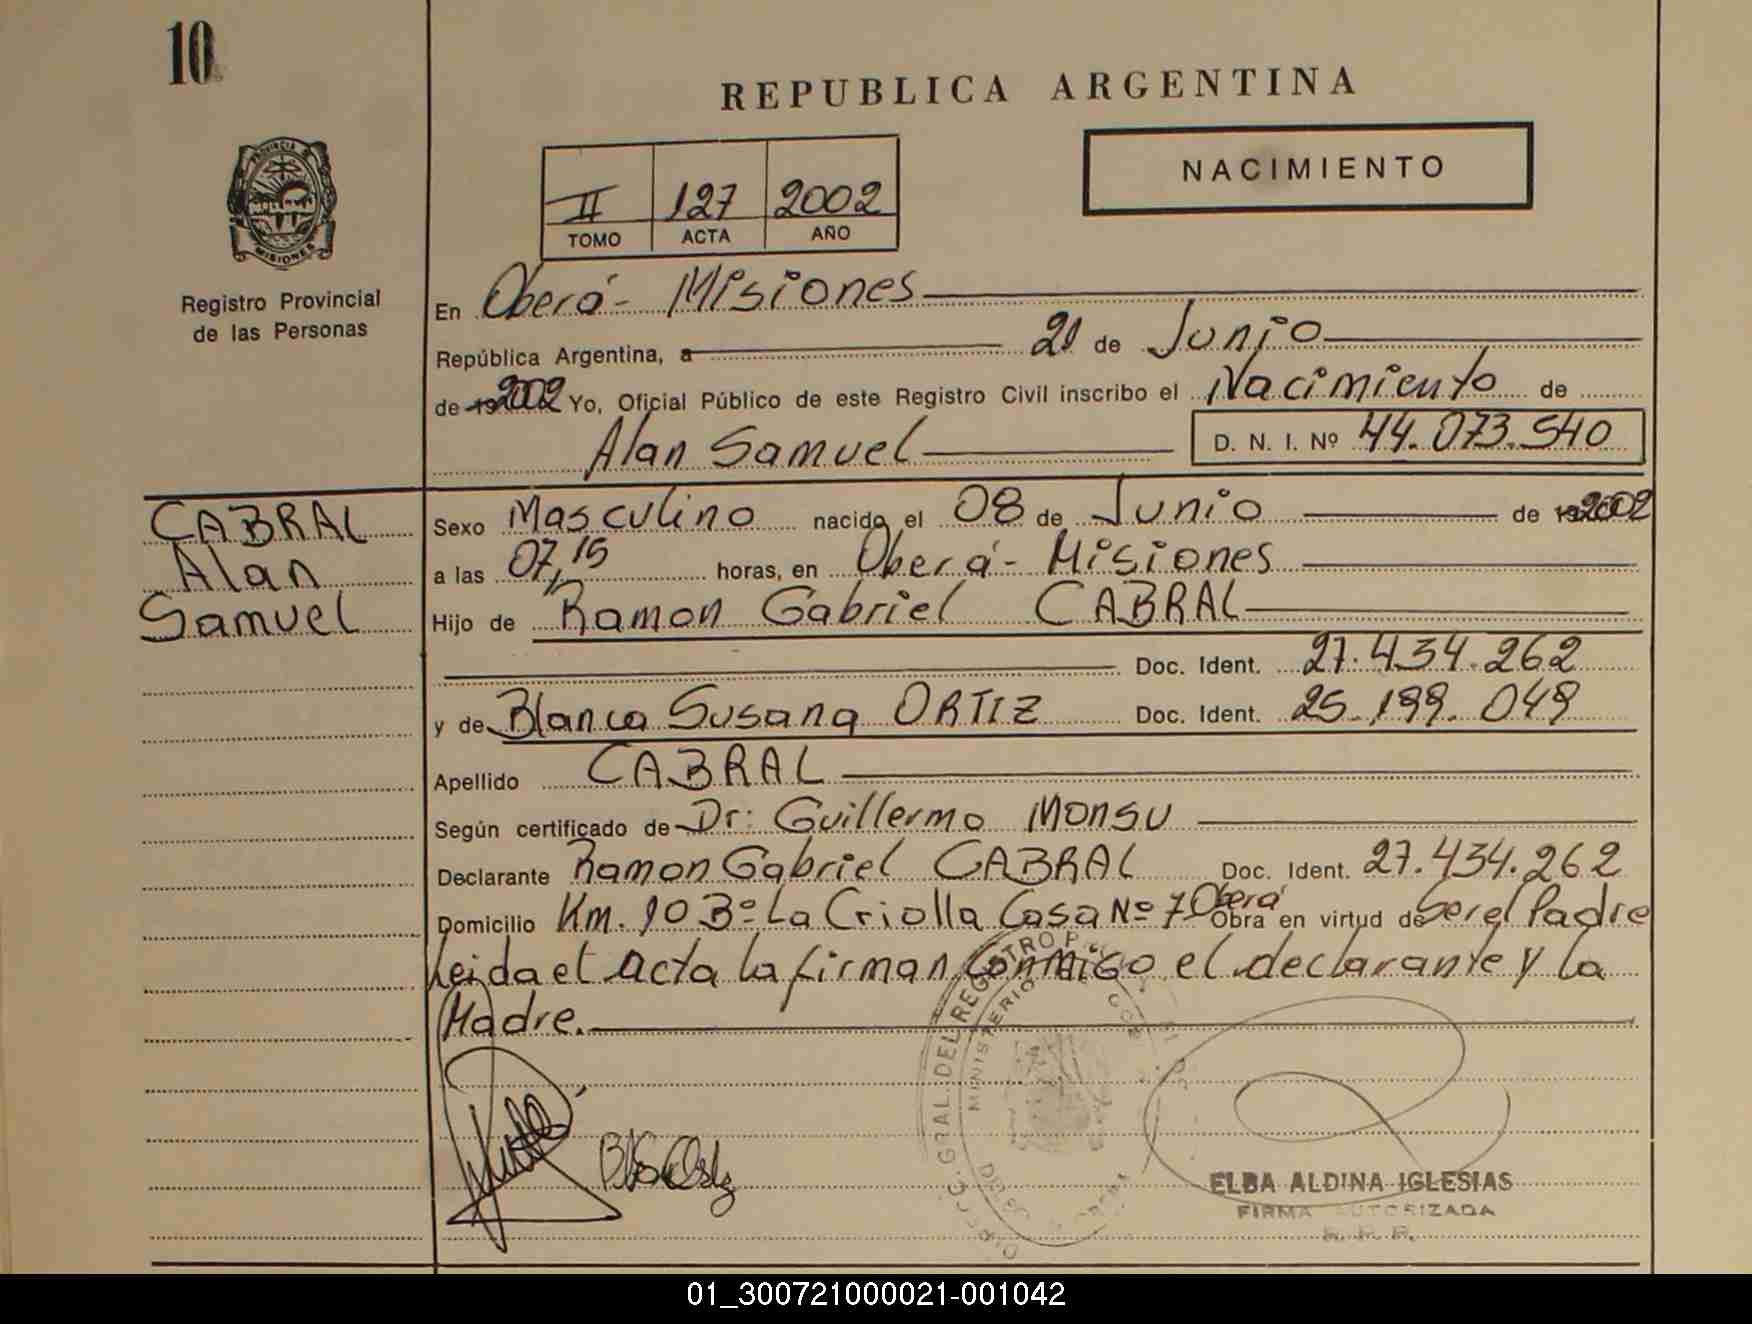 10
REPUBLICA ARGENTINA
NACIMIENTO
II 127 2002
TOMO ACTA AÑO
PROVINCIA DE
MISIONES
Registro Provincial
de las Personas
En Oberá - Misiones
República Argentina, a 21 de Junio
de 2002 Yo, Oficial Público de este Registro Civil inscribo el Nacimiento de
Alan Samuel D. N. I. Nº 44.073.540
CABRAL
Alan
Samuel
Sexo Masculino nacido el 08 de Junio de 2002
a las 07,15 horas, en Oberá - Misiones
Hijo de Ramon Gabriel CABRAL
Doc. Ident. 27.434.262
y de Blanca Susana ORTIZ Doc. Ident. 25.199.049
Apellido CABRAL
Según certificado de Dr: Guillermo MONSU
Declarante Ramon Gabriel CABRAL Doc. Ident. 27.434.262
Domicilio Km. 10 Bº La Criolla Casa Nº 7 Oberá Obra en virtud de Ser el Padre
Leida el acta la firman Conmigo el declarante y la
Madre.
GRAL. DEL REGISTRO
MINISTERIO
ELBA ALDINA IGLESIAS
FIRMA AUTORIZADA
R. P. P.
01_300721000021-001042